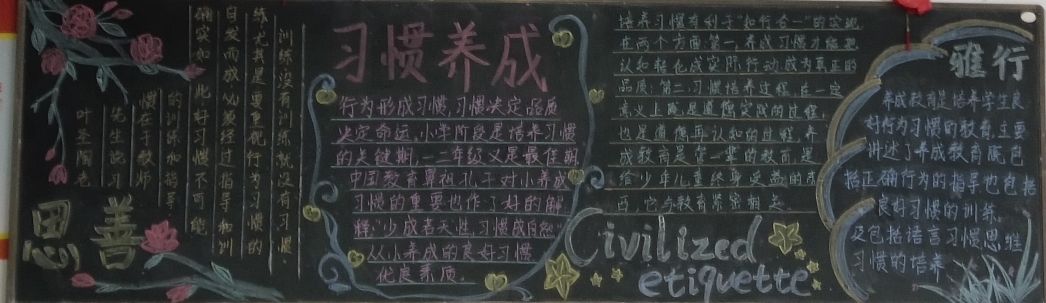 思善
叶圣陶老
先生说习
惯在于教师
的训练和指导
确实如此,好习惯不可能
自发而成,必须经过指导和训
练尤其是要重视行为习惯的
训练没有训练就没有习惯
习惯养成
行为形成习惯,习惯决定品质
决定命运,小学阶段是培养习惯
的关键期,一二年级又是最佳期
中国教育鼻祖孔子对小养成
习惯的重要也作了好的解
释:"少成若天性,习惯成自然"
从小养成的良好习惯
优良素质.
培养习惯有利于"知行合一"的实现
在两个方面第一,养成习惯才能把
认知转化成实际行动,成为真正的
品质;第二,习惯培养过程,在一定
意义上既是道德实践的过程,
也是道德再认知的过程,养
成教育是管一辈的教育,是
给少年儿童终身受益的东
西,它与教育紧密相关
Civilized
etiquette
雅行
养成教育是培养学生良
好行为习惯的教育,主要
讲述了养成教育既包
括正确行为的指导也包括
良好习惯的训练.
及包括语言习惯思维
习惯的培养